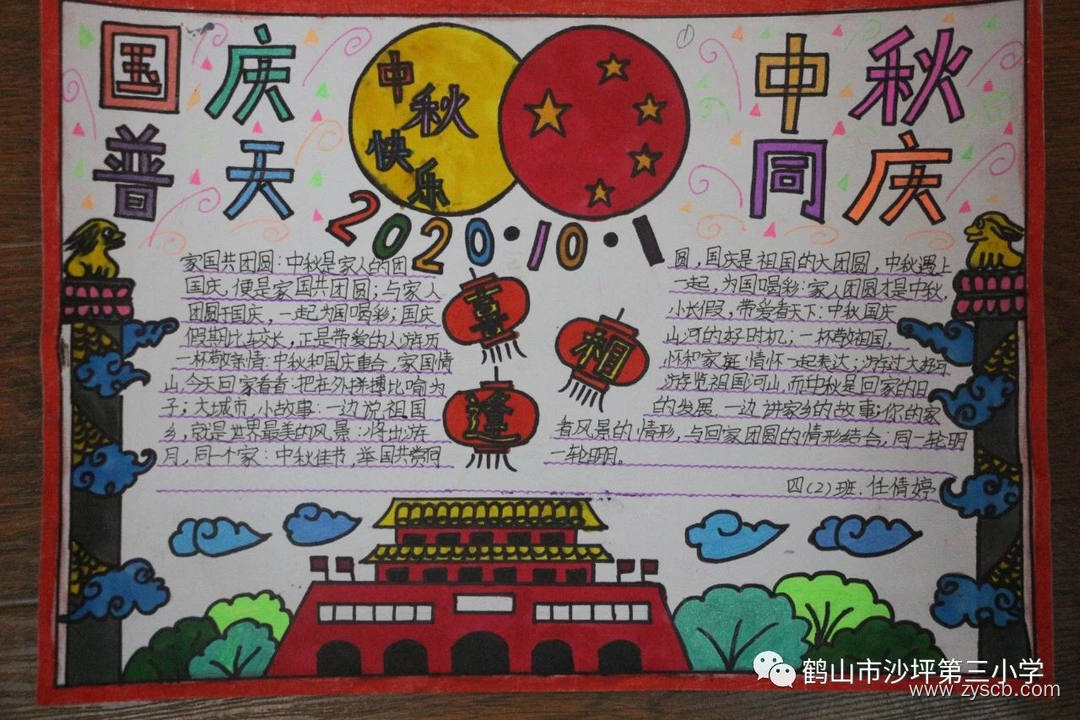 国庆
普天
中秋快乐
中秋
同庆
2020·10·1
家国共团圆：中秋是家人的团圆，国庆是祖国的大团圆，中秋遇上
国庆，便是家国共团圆；与家人一起，为国喝彩：家人团圆才是中秋，
团圆于国庆，一起为国喝彩；国庆小长假，带爱看天下：中秋国庆
假期比较长，正是带爱的人游历山河的好时机；一杯敬祖国，
一杯敬亲情：中秋和国庆重合，家国情怀和家庭情怀一起表达；游过大好河
山，今天回家看看：把在外拼搏比喻为游览祖国河山，而中秋是回家的日
子；大城市，小故事：一边说祖国的发展，一边讲家乡的故事；你的家
乡，就是世界最美的风景：将出游看风景的情形，与回家团圆的情形结合；同一轮明
月，同一个家：中秋佳节，举国共赏同一轮明月。
喜
相
逢
四(2)班.任倩婷
鹤山市沙坪第三小学
www.zyscb.com